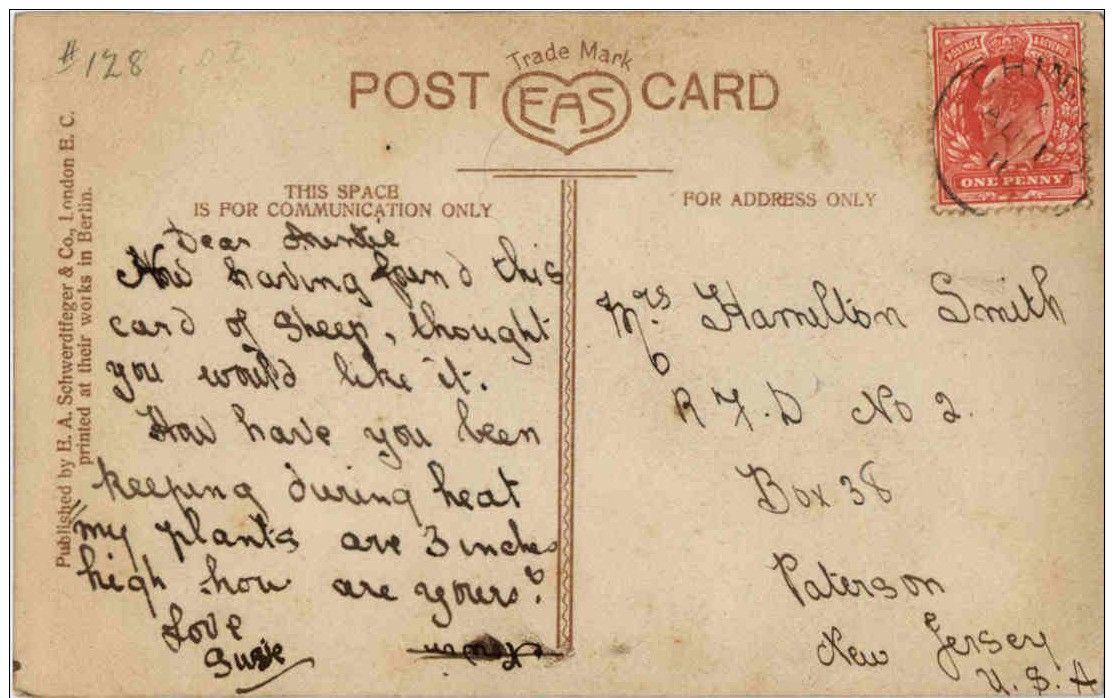 #128 .02
Trade Mark
POST EAS CARD
Published by E. A. Schwerdtfeger & Co., London E. C.
printed at their works in Berlin.
THIS SPACE
IS FOR COMMUNICATION ONLY
Dear Auntie
having found this
card of Sheep, thought
you would like it.
How have you been
keeping during heat
my plants are 3 inches
high how are yours?
Love
Susie
FOR ADDRESS ONLY
POSTAGE & REVENUE
ONE PENNY
Mrs Hamilton Smith
R F.D No 2.
Box 38
Paterson
New Jersey
U.S.A